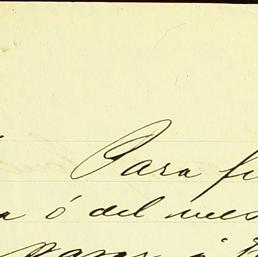 Para fi
a ó del mes
pagar á